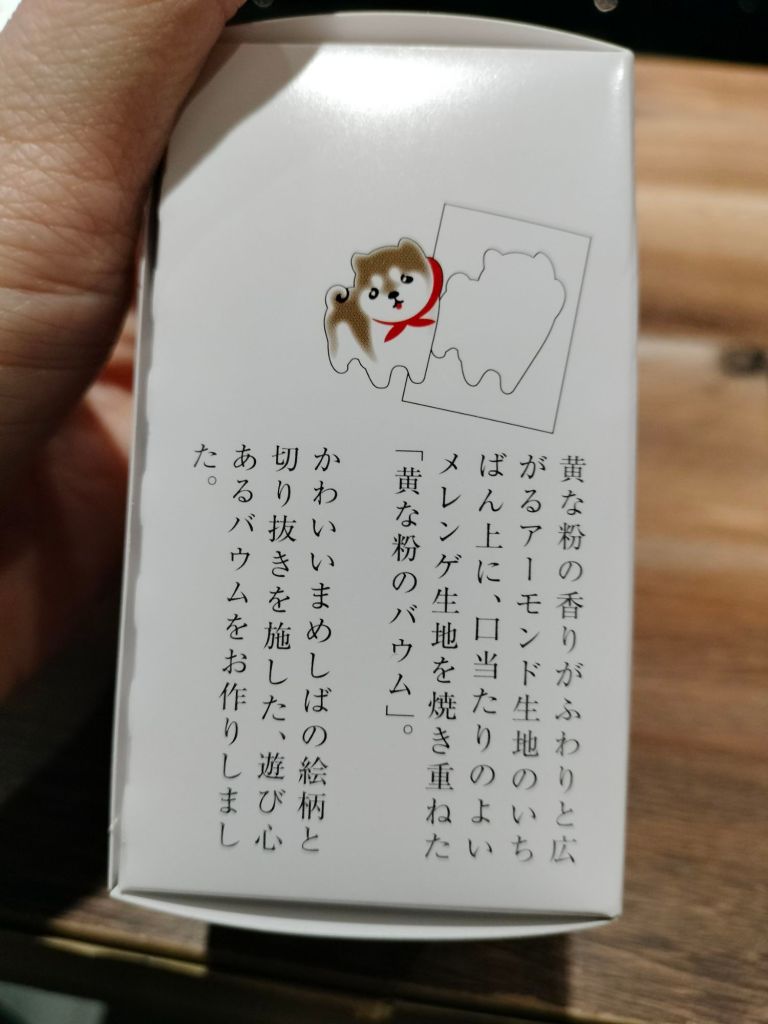 黄な粉の香りがふわりと広
がるアーモンド生地のいち
ばん上に、口当たりのよい
メレンゲ生地を焼き重ねた
「黄な粉のバウム」。
かわいいまめしばの絵柄と
切り抜きを施した、遊び心
あるバウムをお作りしまし
た。